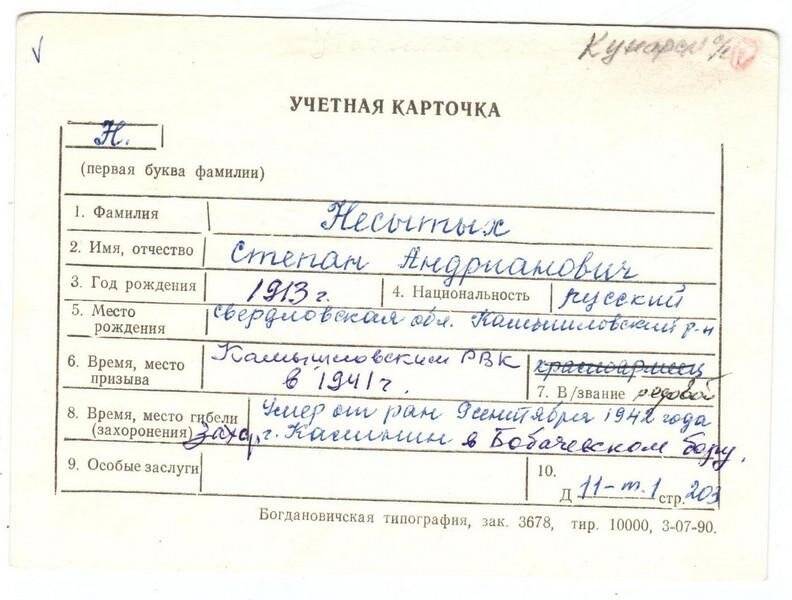 Кунарск с/с
УЧЕТНАЯ КАРТОЧКА
Н.
(первая буква фамилии)
1. Фамилия Несытых
2. Имя, отчество Степан Андрианович
3. Год рождения 1913 г. 4. Национальность русский
5. Место рождения Свердловская обл. Камышловский р-н
6. Время, место призыва Камышловским РВК в 1941 г.
красноармеец
7. В/звание рядовой
8. Время, место гибели (захоронения) Умер от ран 9 сентября 1942 года
захор. г. Калинин в Бобачевском бору.
9. Особые заслуги
10.
Д 11-т.1 стр. 203
Богдановичская типография, зак. 3678, тир. 10000, 3-07-90.